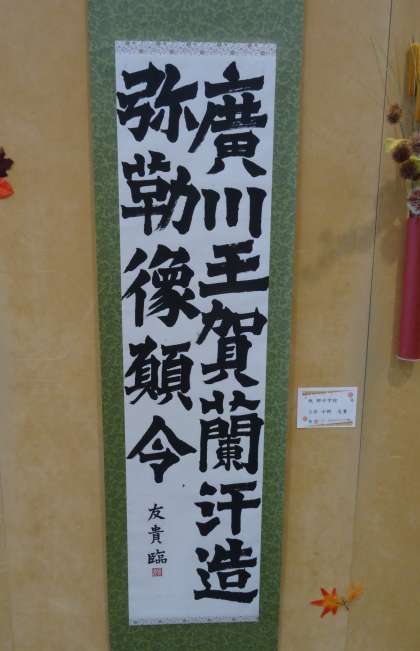 廣川王賀蘭汗造
弥勒像願令
友貴臨